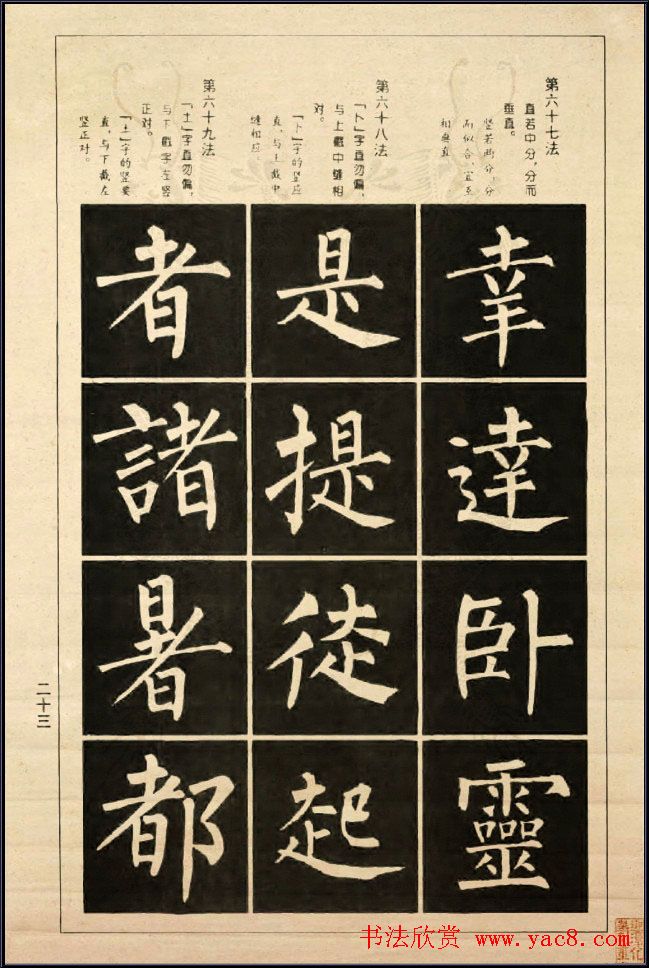 第六十七法
直若中分，分而
垂直。
竖若两分，分
而似合，宜至
相垂直
第六十八法
「卜」字直勿偏，
与上截中缝相
对。
「卜」字的竖应
直，与上截中
缝相应
第六十九法
「土」字直勿偏，
与下截字左竖
正对。
「土」字的竖要
直，与下截左
竖正对。
幸達卧靈
是提徒起
者諸暑都
二十三
书法欣赏 www.yac8.com